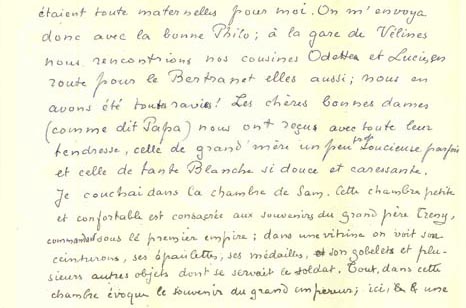 étaient toute maternelles pour moi. On m'envoya
donc avec la bonne Philo; à la gare de Vélines
nous rencontrions nos cousines Odette et Lucie, en
route pour le Bertranet elles aussi; nous en
avons été toutes ravies! Les chères bonnes dames
(comme dit Papa) nous ont reçus avec toute leur
tendresse, celle de grand'mère un peu trop soucieuse parfois
et celle de tante Blanche si douce et caressante.
Je couchai dans la chambre de Sam. Cette chambre petite
et confortable est consacrée aux souvenirs du grand père
commandant sous le premier empire; dans une vitrine on voit son
ceinturons, ses épaulettes, ses médailles, son gobelets et plu-
sieurs autres objets dont se servait ce soldat. Tout, dans cette
chambre évoque le souvenir du grand empereur; ici, une